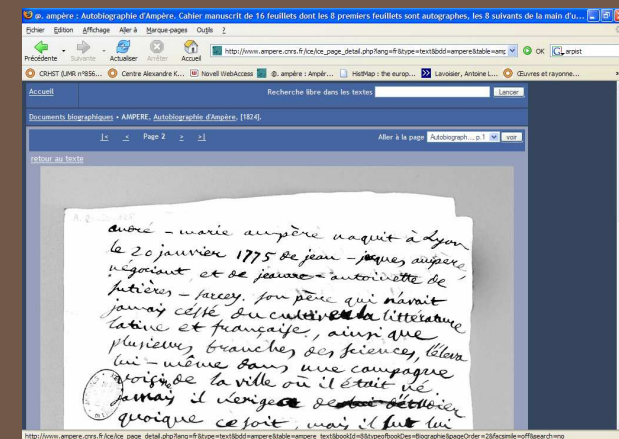 @. ampère : Autobiographie d'Ampère. Cahier manuscrit de 16 feuillets dont les 8 premiers feuillets sont autographes, les 8 suivants de la main d'u...
Fichier Edition Affichage Aller à Marque-pages Outils ?
Précédente Suivante Actualiser Arrêter Accueil http://www.ampere.cnrs.fr/ice/ice_page_detail.php?lang=fr&type=text&bdd=ampere&table=amp OK arpist
CRHST (UMR n°856... Centre Alexandre K... Novell WebAccess @. ampère : Ampèr... HistMap : the europ... Lavoisier, Antoine L... Œuvres et rayonne...
Accueil Recherche libre dans les textes Lancer
Documents biographiques • AMPERE, Autobiographie d'Ampère, [1824].
|< < Page 2 > >| Aller à la page Autobiograph..., p.1 voir
retour au texte
andré - marie ampère naquit à Lyon
le 20 janvier 1775 de jean - jaques ampère,
négociant, et de jeanne - antoinette de
sutières - sarcey. son père qui n'avait
jamais céssé de cultiver la littérature
latine et française, ainsi que
plusieurs branches des sciences, l'éleva
lui - même dans une campagne
voisine de la ville où il était né
jamais il n'exigea de
quoique ce soit, mais il fut lui
http://www.ampere.cnrs.fr/ice/ice_page_detail.php?lang=fr&type=text&bdd=ampere&table=ampere_text&bookId=8&typeofbookDes=Biographie&pageOrder=2&facsimile=off&search=no